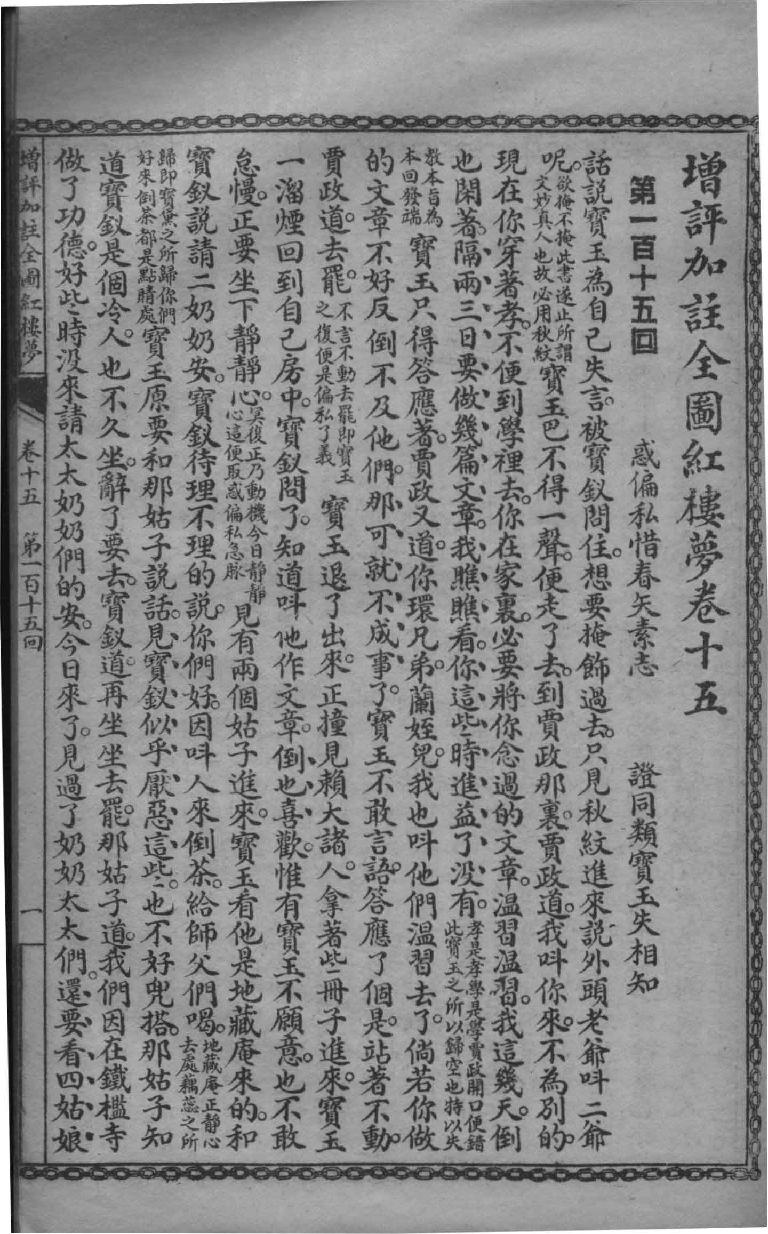 增評加註全圖紅樓夢卷十五
第一百十五回　惑偏私惜春矢素志　證同類寶玉失相知
話說寶玉為自己失言。被寶釵問住。想要掩飾過去。只見秋紋進來說外頭老爺呌二爺
呢。欲掩不掩此書遂止所謂文妙真人也故必用秋紋寶玉巴不得一聲。便走了去。到賈政那裏。賈政道。我呌你來。不為別的。
現在你穿著孝。不便到學裡去。你在家裏。必要將你念過的文章。溫習溫習。我這幾天。倒
也閑著。隔兩三日。要做幾篇文章。我瞧瞧。看你這些時進益了沒有。孝是孝學是學賈政開口便錯此寶玉之所以歸空也特以失
教本旨為本回發端寶玉只得答應著。賈政又道。你環兄弟。蘭姪兒。我也呌他們溫習去了。倘若你做
的文章不好。反倒不及他們。那可就不成事了。寶玉不敢言語。答應了個是。站著不動。
賈政道。去罷。不言不動去罷即寶玉之復便是偏私了義寶玉退了出來。正撞見賴大諸人拿著些冊子進來。寶玉
一溜煙回到自己房中。寶釵問了。知道呌他作文章。倒也喜歡。惟有寶玉不願意。也不敢
怠慢。正要坐下靜靜心。莫復正乃動機今日靜靜心這便取惑偏私急脈見有兩個姑子進來。寶玉看他是地藏庵來的。和
寶釵說。請二奶奶安。寶釵待理不理的說。你們好。因呌人來倒茶。給師父們喝。地藏庵正靜心去處藕蕊之所
歸即寶黛之所歸你們好來倒茶都是點睛處寶玉原要和那姑子說話。見寶釵似乎厭惡這些。也不好兜搭。那姑子知
道寶釵是個冷人。也不久坐。辭了要去。寶釵道。再坐坐去罷。那姑子道。我們因在鐵檻寺
做了功德。好些時沒來請太太奶奶們的安。今日來了。見過了奶奶太太們。還要看四姑娘
增評加註全圖紅樓夢　卷十五　第一百十五回　一